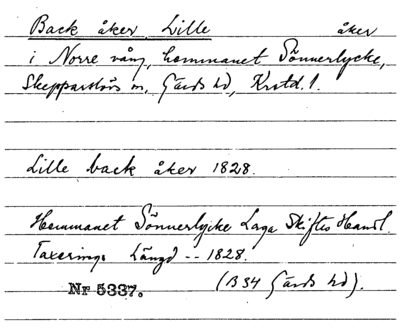 Back åker Lille åker
i Norre vång, hemmanet Sönnerlycke,
Skepparslövs sn, Gärds hd, Krstd. l.
Lille back åker 1828.
Hemmanet Sönnerlycke Laga Skiftes Handl.
Taxerings Längd -- 1828.
Nr 5337. (B 34 Gärds hd).